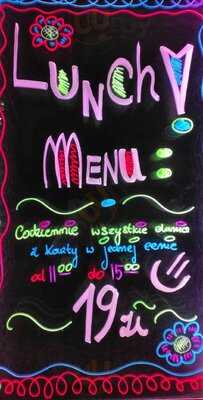 LUNCH!
MENU:
Codziennie wszystkie dania
z karty w jednej cenie
od 11⁰⁰ do 15⁰⁰
19 zł